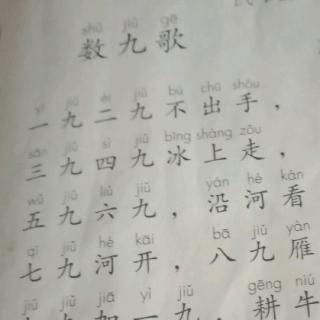 shǔ jiǔ gē
数九歌
yī jiǔ èr jiǔ bù chū shǒu
一九二九不出手，
sān jiǔ sì jiǔ bīng shàng zǒu
三九四九冰上走，
wǔ jiǔ liù jiǔ yán hé kàn
五九六九，沿河看
qī jiǔ hé kāi bā jiǔ yàn
七九河开，八九雁
jiǔ jiǔ jiā yì jiǔ gēng niú
九加一九，耕牛